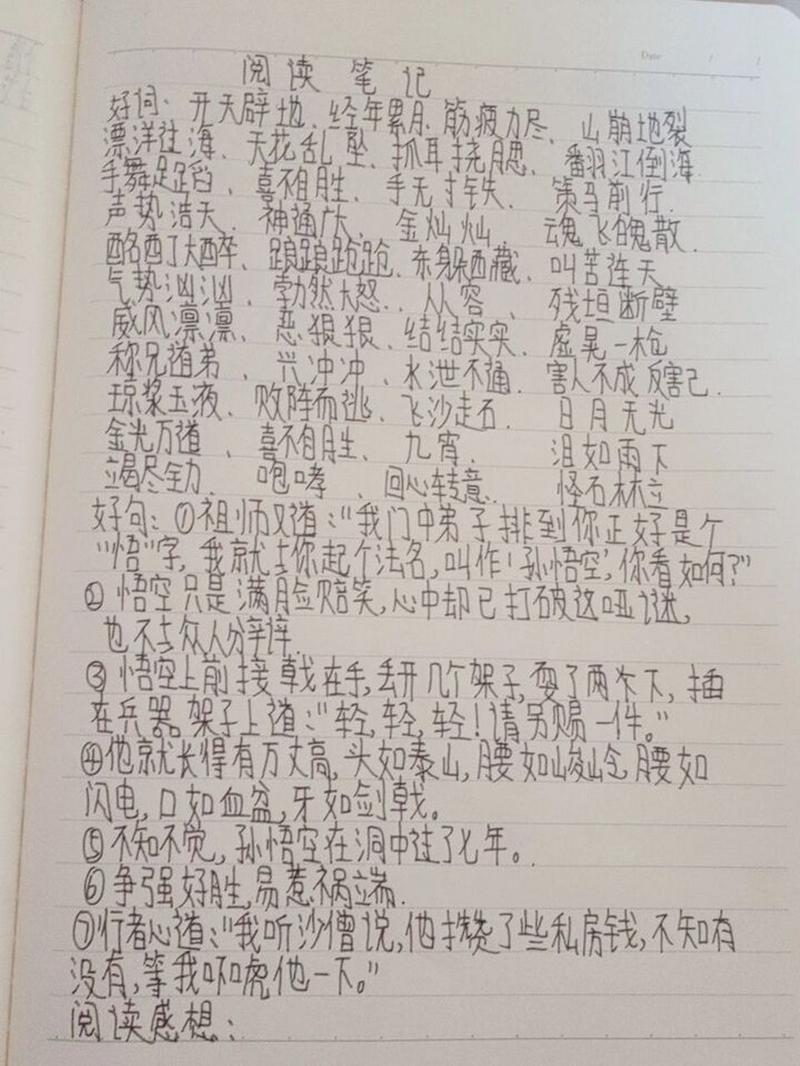 Date
阅读笔记
好词: 开天辟地、经年累月、筋疲力尽、山崩地裂
漂洋过海、天花乱坠、抓耳挠腮、翻江倒海
手舞足蹈、喜不自胜、手无寸铁、策马前行
声势浩大、神通广大、金灿灿、魂飞魄散
酩酊大醉、踉踉跄跄、东躲西藏、叫苦连天
气势汹汹、勃然大怒、从容、残垣断壁
威风凛凛、恶狠狠、结结实实、虚晃一枪
称兄道弟、兴冲冲、水泄不通、害人不成反害己
琼浆玉液、败阵而逃、飞沙走石、日月无光
金光万道、喜不自胜、九霄、泪如雨下
竭尽全力、咆哮、回心转意、怪石林立
好句:①祖师又道:"我门中弟子排到你正好是个
"悟"字,我就与你起个法名,叫作'孙悟空',你看如何?"
②悟空只是满脸赔笑,心中却已打破这哑谜,
也不与众人分辩.
③悟空上前接戟在手,丢开几个架子,耍了两下,插
在兵器架子上道:"轻,轻,轻!请另赐一件。"
④他就长得有万丈高,头如泰山,腰如峻岭,腰如
闪电,口如血盆,牙如剑戟。
⑤不知不觉,孙悟空在洞中过了七年。
⑥争强好胜,易惹祸端.
⑦行者心道:"我听沙僧说,他攒了些私房钱,不知有
没有,等我吓唬他一下。"
阅读感想: